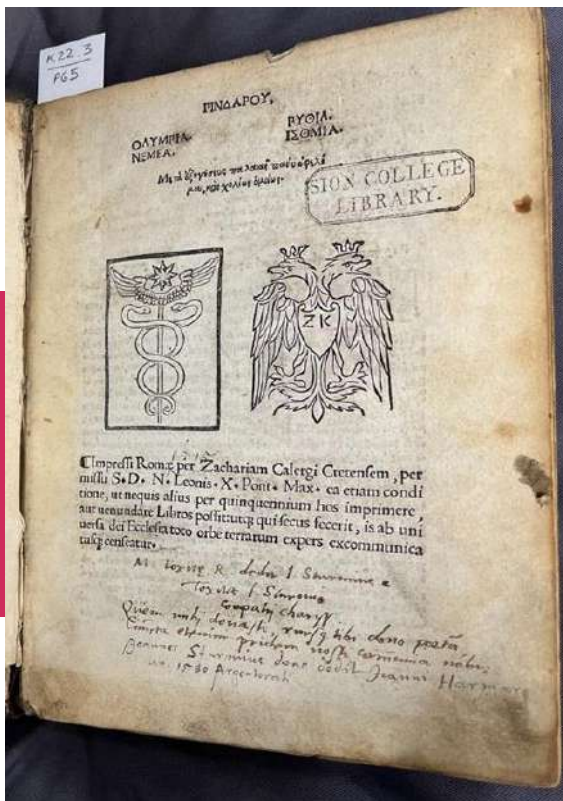 K22.3
P65
ΠΙΝΔΑΡΟΥ.
ΟΛΥΜΠΙΑ. ΠΥΘΙΑ.
ΝΕΜΕΑ. ΙΣΘΜΙΑ.
Μετὰ ἐξηγήσεως παλαιᾶς πάνυ ὠφελί
μου, καὶ χολίων ὁμοίων.
SION COLLEGE
LIBRARY.
Z K
Impressi Romæ per Zachariam Calergi Cretensem, per
missu S.D. N. Leonis. X. Pont. Max. ea etiam condi
tione, ut nequis alius per quinquennium hos imprimere,
aut uenundare Libros possit, utq; qui secus fecerit, is ab uni
uersa dei Ecclesia toto orbe terrarum expers excommunica
tusq; censeatur.
M. Toxitę R. dedit I. Sturmius
Toxitæ I. Sturmius
Quem mihi donasti, rursus tibi dono poeta
Joannes Sturmius dono dedit Joanni Harmaro
an. 1580 Argentorati